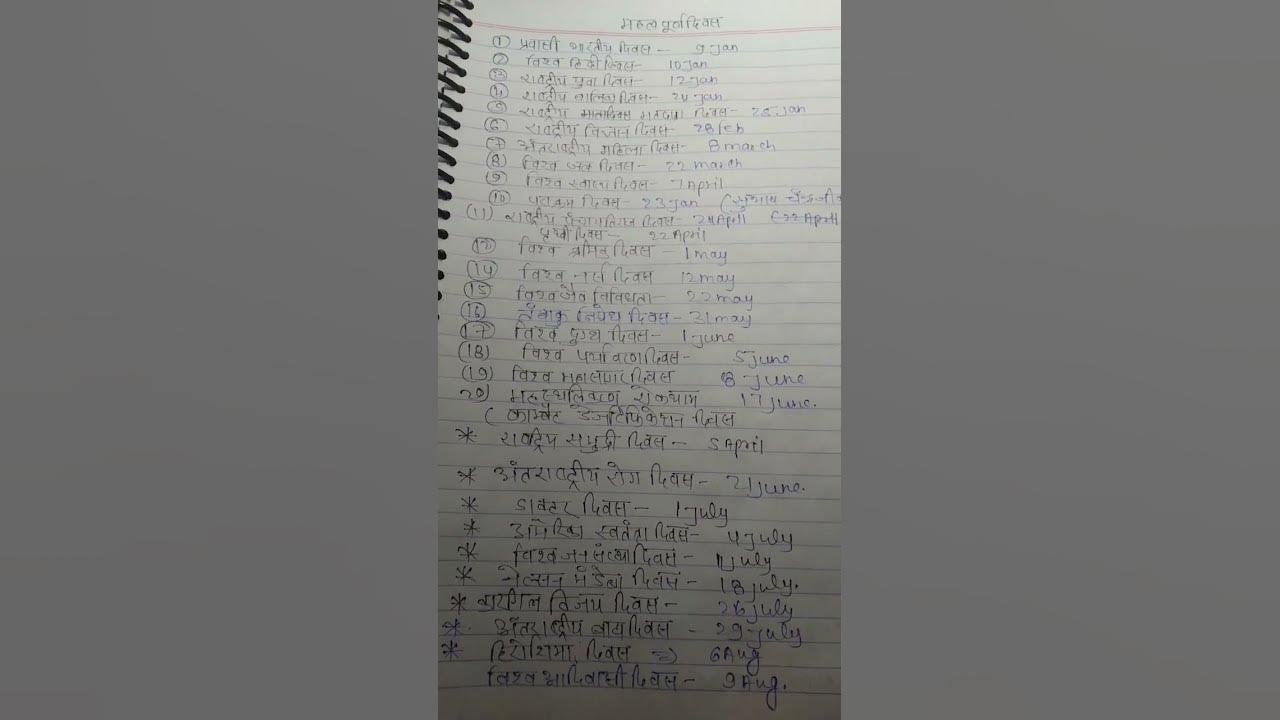 महत्वपूर्ण दिवस
① प्रवासी भारतीय दिवस – 9 Jan
② विश्व हिन्दी दिवस – 10 Jan
③ राष्ट्रीय युवा दिवस – 12 Jan
④ राष्ट्रीय बालिका दिवस – 24 Jan
⑤ राष्ट्रीय मतदाता दिवस – 25 Jan
⑥ राष्ट्रीय विज्ञान दिवस – 28 Feb
⑦ अंतराष्ट्रीय महिला दिवस – 8 march
⑧ विश्व जल दिवस – 22 march
⑨ विश्व स्वास्थ्य दिवस – 7 April
⑩ पराक्रम दिवस – 23 Jan (सुभाष चन्द्र
(11) राष्ट्रीय पंचायतिराज दिवस – 24 April (22 April
पृथ्वी दिवस – 22 April
विश्व श्रमिक दिवस – 1 may
(14) विश्व नर्स दिवस 12 may
(15) विश्व जैव विविधता – 22 may
(16) तंबाकु निषेध दिवस – 31 may
(17) विश्व दुग्ध दिवस – 1 June
(18) विश्व पर्यावरण दिवस – 5 June
(19) विश्व महासागर दिवस 8 – June
20) मरुस्थलिकरण रोकथाम 17 June.
( काम्बैट डेजर्टिफिकेशन दिवस
* राष्ट्रिय समुद्री दिवस – 5 April
* अंतराष्ट्रीय योग दिवस – 21 June.
* डाक्टर दिवस – 1 July
* अमेरिका स्वतंता दिवस – 4 July
* विश्व जनसंख्या दिवस – 11 July
* नेल्सन मंडेला दिवस – 18 July.
* कारगिल विजय दिवस – 26 July
* अंतराष्ट्रीय बाघ दिवस – 29 July
* हिरोशिमा दिवस => 6 Aug
विश्व आदिवासी दिवस – 9 Aug.